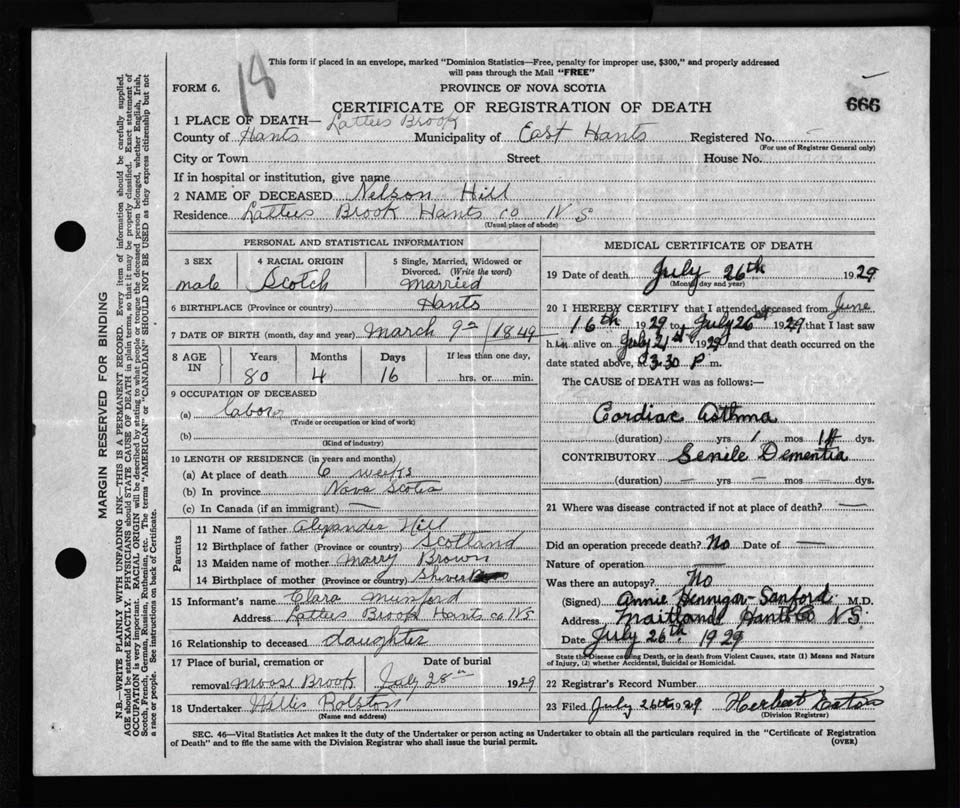 18
This form if placed in an envelope, marked "Dominion Statistics—Free, penalty for improper use, $300," and properly addressed
will pass through the Mail "FREE"
FORM 6.
PROVINCE OF NOVA SCOTIA
CERTIFICATE OF REGISTRATION OF DEATH
666
1 PLACE OF DEATH— Latties Brook
County of Hants Municipality of East Hants Registered No. —
(For use of Registrar General only)
City or Town Street House No.
If in hospital or institution, give name
2 NAME OF DECEASED Nelson Hill
Residence Latties Brook Hants co N S
(Usual place of abode)
PERSONAL AND STATISTICAL INFORMATION
3 SEX
male
4 RACIAL ORIGIN
Scotch
5 Single, Married, Widowed or
Divorced. (Write the word)
married
6 BIRTHPLACE (Province or country) Hants
7 DATE OF BIRTH (month, day and year) March 9th 1849
8 AGE
IN
Years Months Days If less than one day,
80 4 16 hrs. or min.
9 OCCUPATION OF DECEASED
(a) labor
(Trade or occupation or kind of work)
(b)
(Kind of industry)
10 LENGTH OF RESIDENCE (in years and months)
(a) At place of death 6 weeks
(b) In province Nova Scotia
(c) In Canada (if an immigrant) —
Parents
11 Name of father Alexander Hill
12 Birthplace of father (Province or country) Scotland
13 Maiden name of mother mary Brown
14 Birthplace of mother (Province or country)
15 Informant's name Clara Munford
Address Latties Brook Hants co N S
16 Relationship to deceased daughter
17 Place of burial, cremation or
removal Moose Brook
Date of burial
July 28th 1929
18 Undertaker Willis Rolston
(Name and address)
MEDICAL CERTIFICATE OF DEATH
19 Date of death July 26th 1929
(Month, day and year)
20 I HEREBY CERTIFY that I attended deceased from June
16th 1929 to July 26th 1929 that I last saw
h im alive on July 21st 1929 and that death occurred on the
date stated above, at 3.30 P m.
The CAUSE of DEATH was as follows:—
Cardiac Asthma
(duration) yrs 1 mos 14 dys.
CONTRIBUTORY Senile Dementia
(duration) — yrs — mos — dys.
21 Where was disease contracted if not at place of death? —
Did an operation precede death? No Date of —
Nature of operation —
Was there an autopsy? No
(Signed) Annie Hennigar-Sanford M.D.
Address Maitland Hants Co N S.
Date July 26th 1929
State the Disease causing Death, or in death from Violent Causes, state (1) Means and Nature
of Injury, (2) whether Accidental, Suicidal or Homicidal.
22 Registrar's Record Number
23 Filed July 26th 1929 Herbert Eaton
(Division Registrar)
SEC. 46—Vital Statistics Act makes it the duty of the Undertaker or person acting as Undertaker to obtain all the particulars required in the "Certificate of Registration
of Death" and to file the same with the Division Registrar who shall issue the burial permit.
(OVER)
MARGIN RESERVED FOR BINDING
N.B.—WRITE PLAINLY WITH UNFADING INK—THIS IS A PERMANENT RECORD. Every item of information should be carefully supplied.
AGE should be stated EXACTLY. PHYSICIANS should STATE CAUSE OF DEATH in plain terms, so that it may be properly classified. Exact statement of
OCCUPATION is very important. RACIAL ORIGIN will be described by stating to what people or tongue the deceased person belonged, whether English, Irish,
Scotch, French, German, Russian, Ruthenian, etc. The terms "AMERICAN" or "CANADIAN" SHOULD NOT BE USED as they express citizenship but not
a race or people. See instructions on back of Certificate.